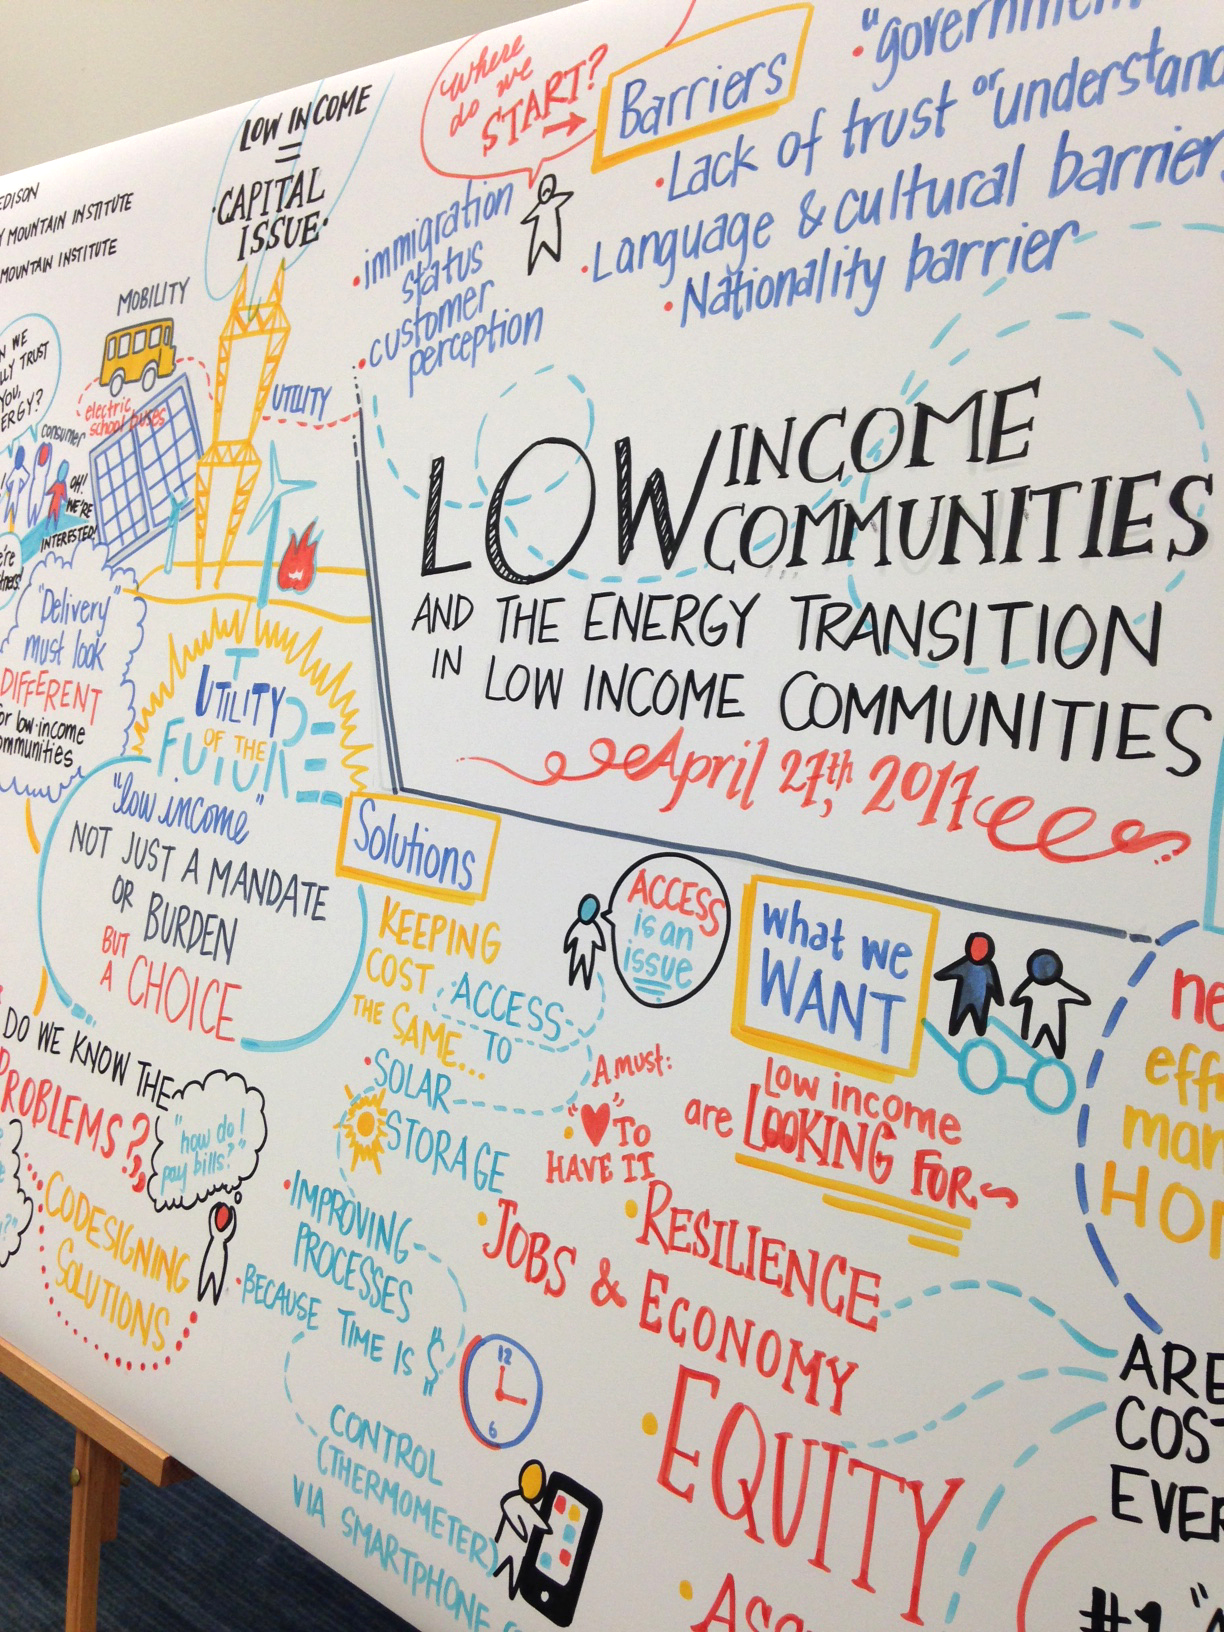 EDISON
MOUNTAIN INSTITUTE
MOUNTAIN INSTITUTE
LOW INCOME
=
CAPITAL
ISSUE
MOBILITY
electric
school buses
UTILITY
WE
TRUST
YOU,
consumer
OH!
WE'RE
INTERESTED!
"Delivery"
must look
DIFFERENT
for low-income
communities
UTILITY
OF THE
FUTURE
"low income"
NOT JUST A MANDATE
OR BURDEN
BUT
A CHOICE
DO WE KNOW THE
PROBLEMS?
"how do I
pay bills?"
CODESIGNING
SOLUTIONS
Where
do we
START?
Barriers
• "government"
• Lack of trust or understand
• Language & cultural barrier
• Nationality barrier
• immigration
status
• customer
perception
LOW INCOME
COMMUNITIES
AND THE ENERGY TRANSITION
IN LOW INCOME COMMUNITIES
April 27th, 2017
Solutions
KEEPING
COST
THE SAME...
ACCESS
TO
• SOLAR
• STORAGE
ACCESS
is an
issue
A must:
"♥" TO
HAVE IT
• IMPROVING
PROCESSES
• BECAUSE TIME IS "$"
12
6
CONTROL
(THERMOMETER)
VIA SMARTPHONE
what we
WANT
Low income
are LOOKING FOR
• RESILIENCE
• JOBS & ECONOMY
• EQUITY
HOM
ARE
COST
EVER
#1